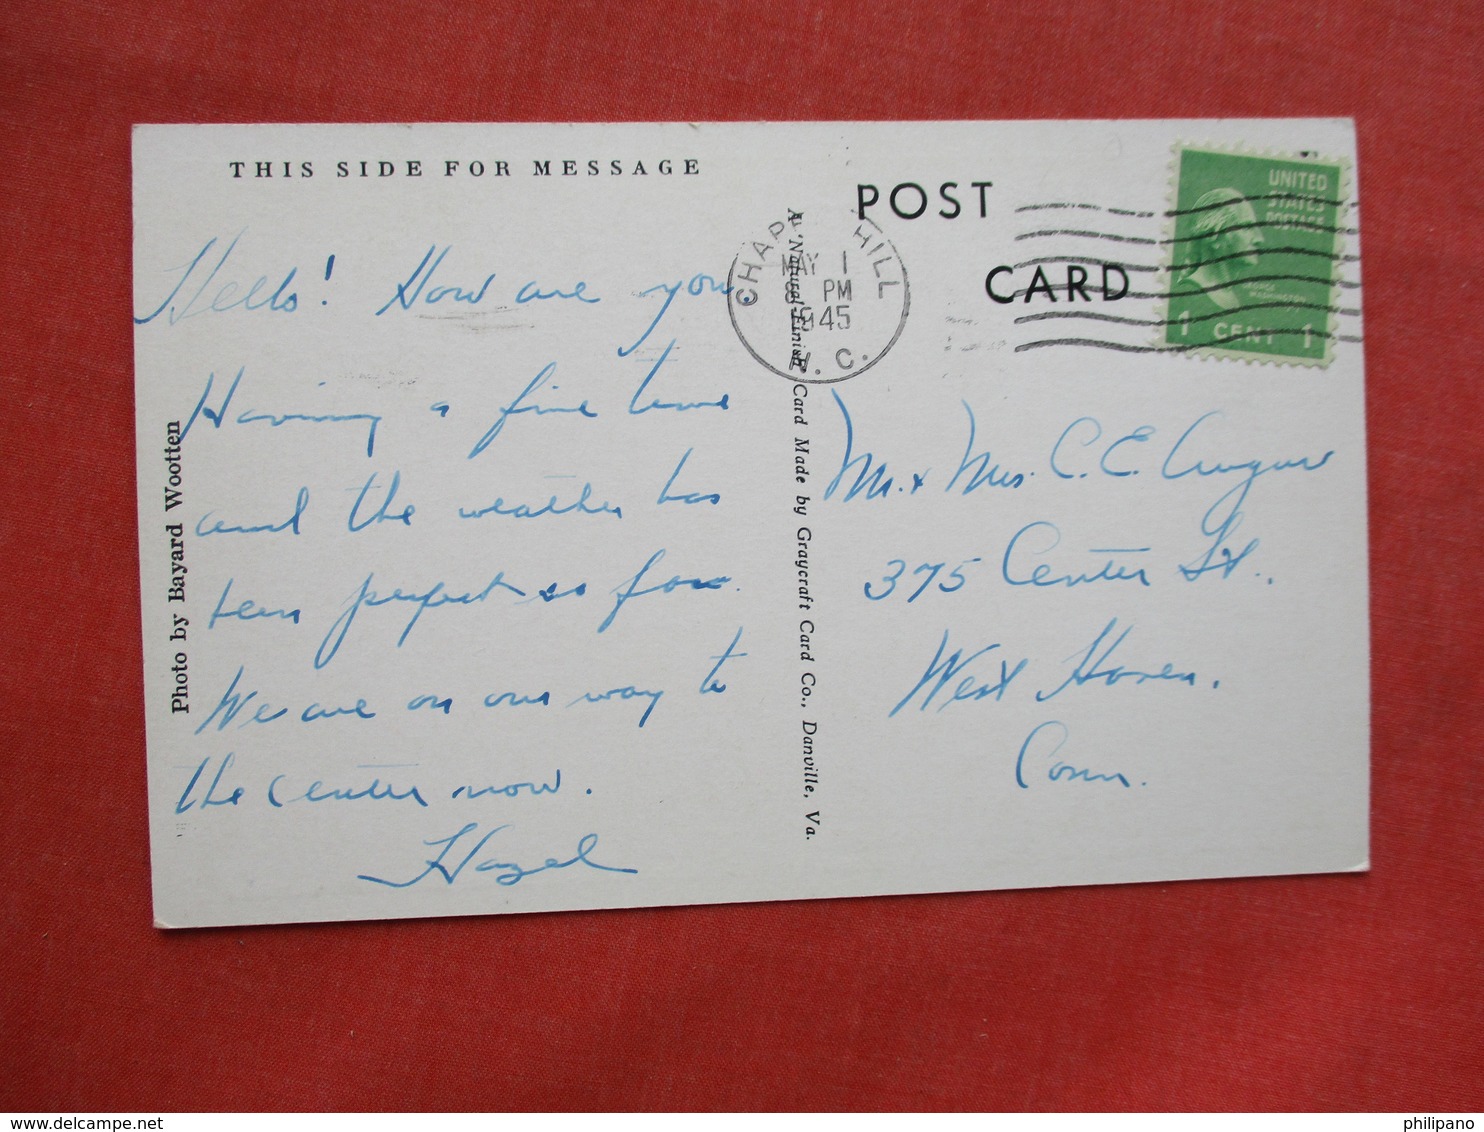 THIS SIDE FOR MESSAGE
Hello! How are you
Having a fine time
and the weather has
been perfect so far.
We are on our way to
the center now.
Hazel
Photo by Bayard Wootten
A "Natural Finish" Card Made by Graycraft Card Co., Danville, Va.
POST
CARD
CHAPEL HILL
MAY 1
8 PM
1945
N. C.
UNITED
STATES
POSTAGE
1 CENT 1
Mr. & Mrs. C. E.
375 Center St.,
West Haven,
Conn.
delcampe.net
philipano